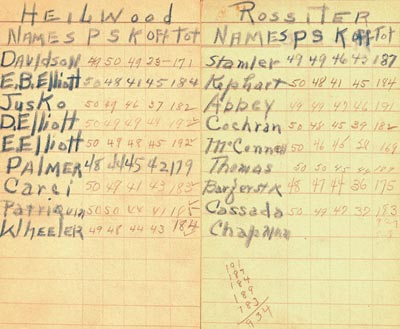 HEILWOOD
NAMES P S K Off Tot
Davidson 49 50 49 23-171
E.B. Elliott 50 48 41 45 184
JusKo 50 49 46 37 182
D. Elliott 50 49 49
E Elliott 50 49 48 45 192
PALMER 48 44 45 42 179
Carei 50 49 41 43 183
Patriquin 50 50
Wheeler 49 48 44 43 184
ROSSITER
NAMES P S K Off Tot
Stamler 49 49 46 43 187
Kephart 50 48 41 45 184
Abbey 49 49 47 46 191
Cochran 50 48 45 39 182
McConnell 50 46 169
Thomas 50 50 45
48 47 44 36 175
Cassada 50 49 47 37 183
Chapman
191
187
184
189
183
934